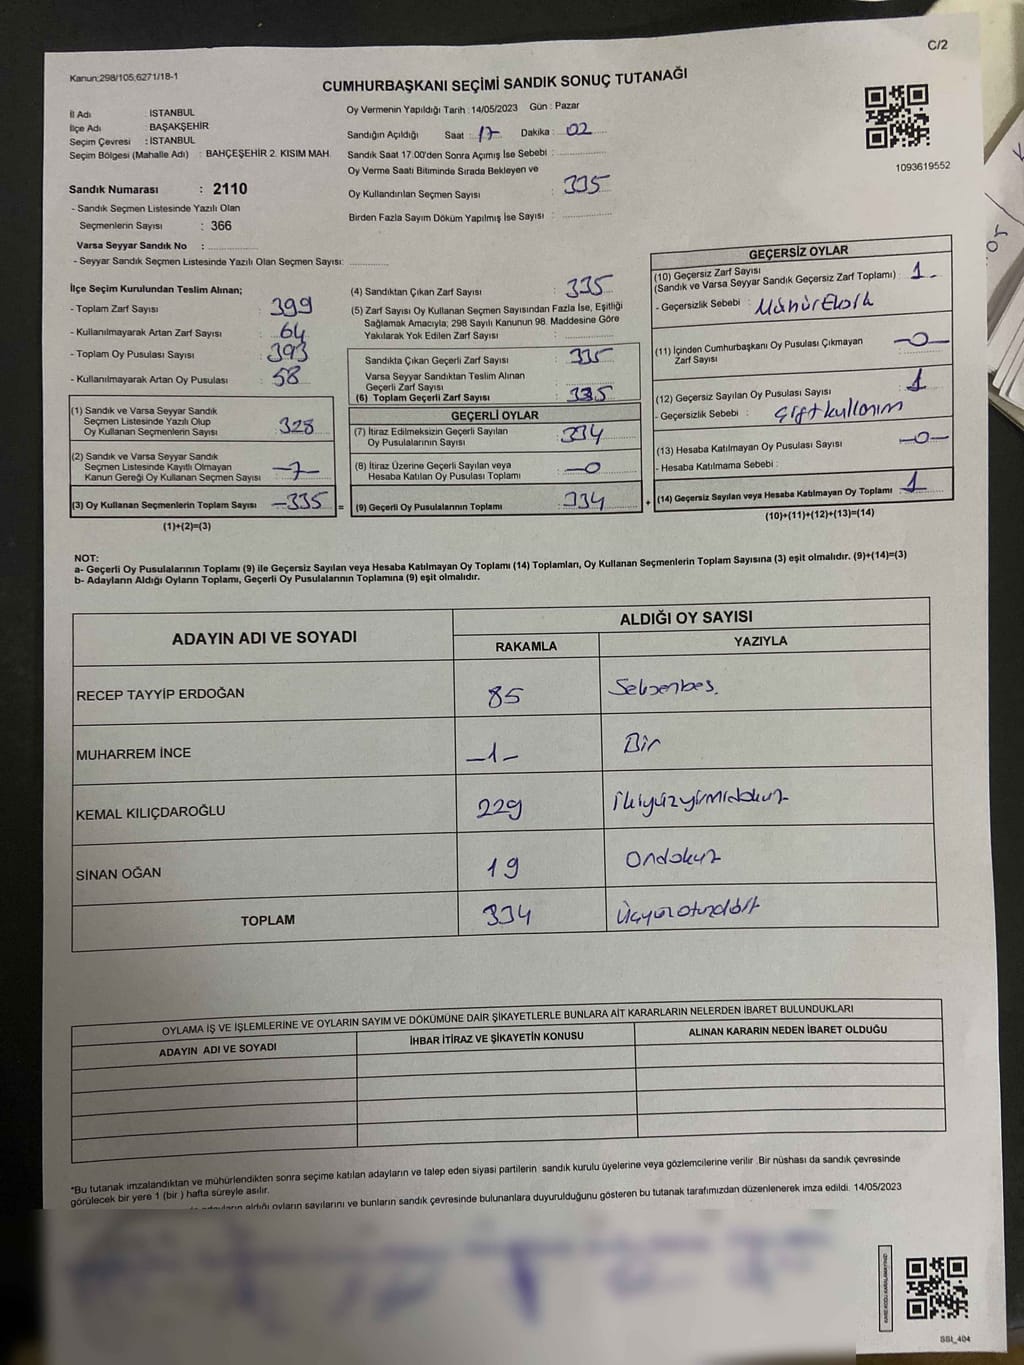 C/2
Kanun;298/105;6271/18-1
CUMHURBAŞKANI SEÇİMİ SANDIK SONUÇ TUTANAĞI
İl Adı : İSTANBUL
İlçe Adı BAŞAKŞEHİR
Seçim Çevresi : İSTANBUL
Seçim Bölgesi (Mahalle Adı) : BAHÇEŞEHİR 2. KISIM MAH.
Sandık Numarası : 2110
- Sandık Seçmen Listesinde Yazılı Olan
Seçmenlerin Sayısı : 366
Varsa Seyyar Sandık No :
- Seyyar Sandık Seçmen Listesinde Yazılı Olan Seçmen Sayısı:
Oy Vermenin Yapıldığı Tarih : 14/05/2023 Gün : Pazar
Sandığın Açıldığı Saat : 17 Dakika : 02
Sandık Saat 17.00'den Sonra Açımış İse Sebebi :
Oy Verme Saati Bitiminde Sırada Bekleyen ve
Oy Kullandırılan Seçmen Sayısı : 335
Birden Fazla Sayım Döküm Yapılmış İse Sayısı :
1093619552
İlçe Seçim Kurulundan Teslim Alınan;
- Toplam Zarf Sayısı : 399
- Kullanılmayarak Artan Zarf Sayısı : 64
- Toplam Oy Pusulası Sayısı : 393
- Kullanılmayarak Artan Oy Pusulası : 58
(1) Sandık ve Varsa Seyyar Sandık
Seçmen Listesinde Yazılı Olup
Oy Kullanan Seçmenlerin Sayısı : 328
(2) Sandık ve Varsa Seyyar Sandık
Seçmen Listesinde Kayıtlı Olmayan
Kanun Gereği Oy Kullanan Seçmen Sayısı : -7-
(3) Oy Kullanan Seçmenlerin Toplam Sayısı : -335 =
(1)+(2)=(3)
(4) Sandıktan Çıkan Zarf Sayısı : 335
(5) Zarf Sayısı Oy Kullanan Seçmen Sayısından Fazla İse, Eşitliği
Sağlamak Amacıyla; 298 Sayılı Kanunun 98. Maddesine Göre
Yakılarak Yok Edilen Zarf Sayısı :
Sandıkta Çıkan Geçerli Zarf Sayısı : 335
Varsa Seyyar Sandıktan Teslim Alınan
Geçerli Zarf Sayısı :
(6) Toplam Geçerli Zarf Sayısı : 335
GEÇERLİ OYLAR
(7) İtiraz Edilmeksizin Geçerli Sayılan
Oy Pusulalarının Sayısı : 334
(8) İtiraz Üzerine Geçerli Sayılan veya
Hesaba Katılan Oy Pusulası Toplamı : -0
(9) Geçerli Oy Pusulalarının Toplamı : 334 +
GEÇERSİZ OYLAR
(10) Geçersiz Zarf Sayısı
(Sandık ve Varsa Seyyar Sandık Geçersiz Zarf Toplamı) : 1-
- Geçersizlik Sebebi : Mühür Eksik
(11) İçinden Cumhurbaşkanı Oy Pusulası Çıkmayan
Zarf Sayısı : -0-
(12) Geçersiz Sayılan Oy Pusulası Sayısı : 1
- Geçersizlik Sebebi : çift kullanım
(13) Hesaba Katılmayan Oy Pusulası Sayısı : -0-
- Hesaba Katılmama Sebebi :
(14) Geçersiz Sayılan veya Hesaba Katılmayan Oy Toplamı : 1
(10)+(11)+(12)+(13)=(14)
NOT:
a- Geçerli Oy Pusulalarının Toplamı (9) ile Geçersiz Sayılan veya Hesaba Katılmayan Oy Toplamı (14) Toplamları, Oy Kullanan Seçmenlerin Toplam Sayısına (3) eşit olmalıdır. (9)+(14)=(3)
b- Adayların Aldığı Oyların Toplamı, Geçerli Oy Pusulalarının Toplamına (9) eşit olmalıdır.
ADAYIN ADI VE SOYADI ALDIĞI OY SAYISI
RAKAMLA YAZIYLA
RECEP TAYYİP ERDOĞAN 85 Seksenbeş.
MUHARREM İNCE -1- Bir
KEMAL KILIÇDAROĞLU 229 İkiyüzyirmidokuz
SİNAN OĞAN 19 Ondokuz
TOPLAM 334 Üçyüzotuzdört
OYLAMA İŞ VE İŞLEMLERİNE VE OYLARIN SAYIM VE DÖKÜMÜNE DAİR ŞİKAYETLERLE BUNLARA AİT KARARLARIN NELERDEN İBARET BULUNDUKLARI
ADAYIN ADI VE SOYADI İHBAR İTİRAZ VE ŞİKAYETİN KONUSU ALINAN KARARIN NEDEN İBARET OLDUĞU
*Bu tutanak imzalandıktan ve mühürlendikten sonra seçime katılan adayların ve talep eden siyasi partilerin sandık kurulu üyelerine veya gözlemcilerine verilir .Bir nüshası da sandık çevresinde
görülecek bir yere 1 (bir ) hafta süreyle asılır.
adayların aldığı oyların sayılarını ve bunların sandık çevresinde bulunanlara duyurulduğunu gösteren bu tutanak tarafımızdan düzenlenerek imza edildi. 14/05/2023
KARE KODU KARALAMAYINIZ!
SSI_404